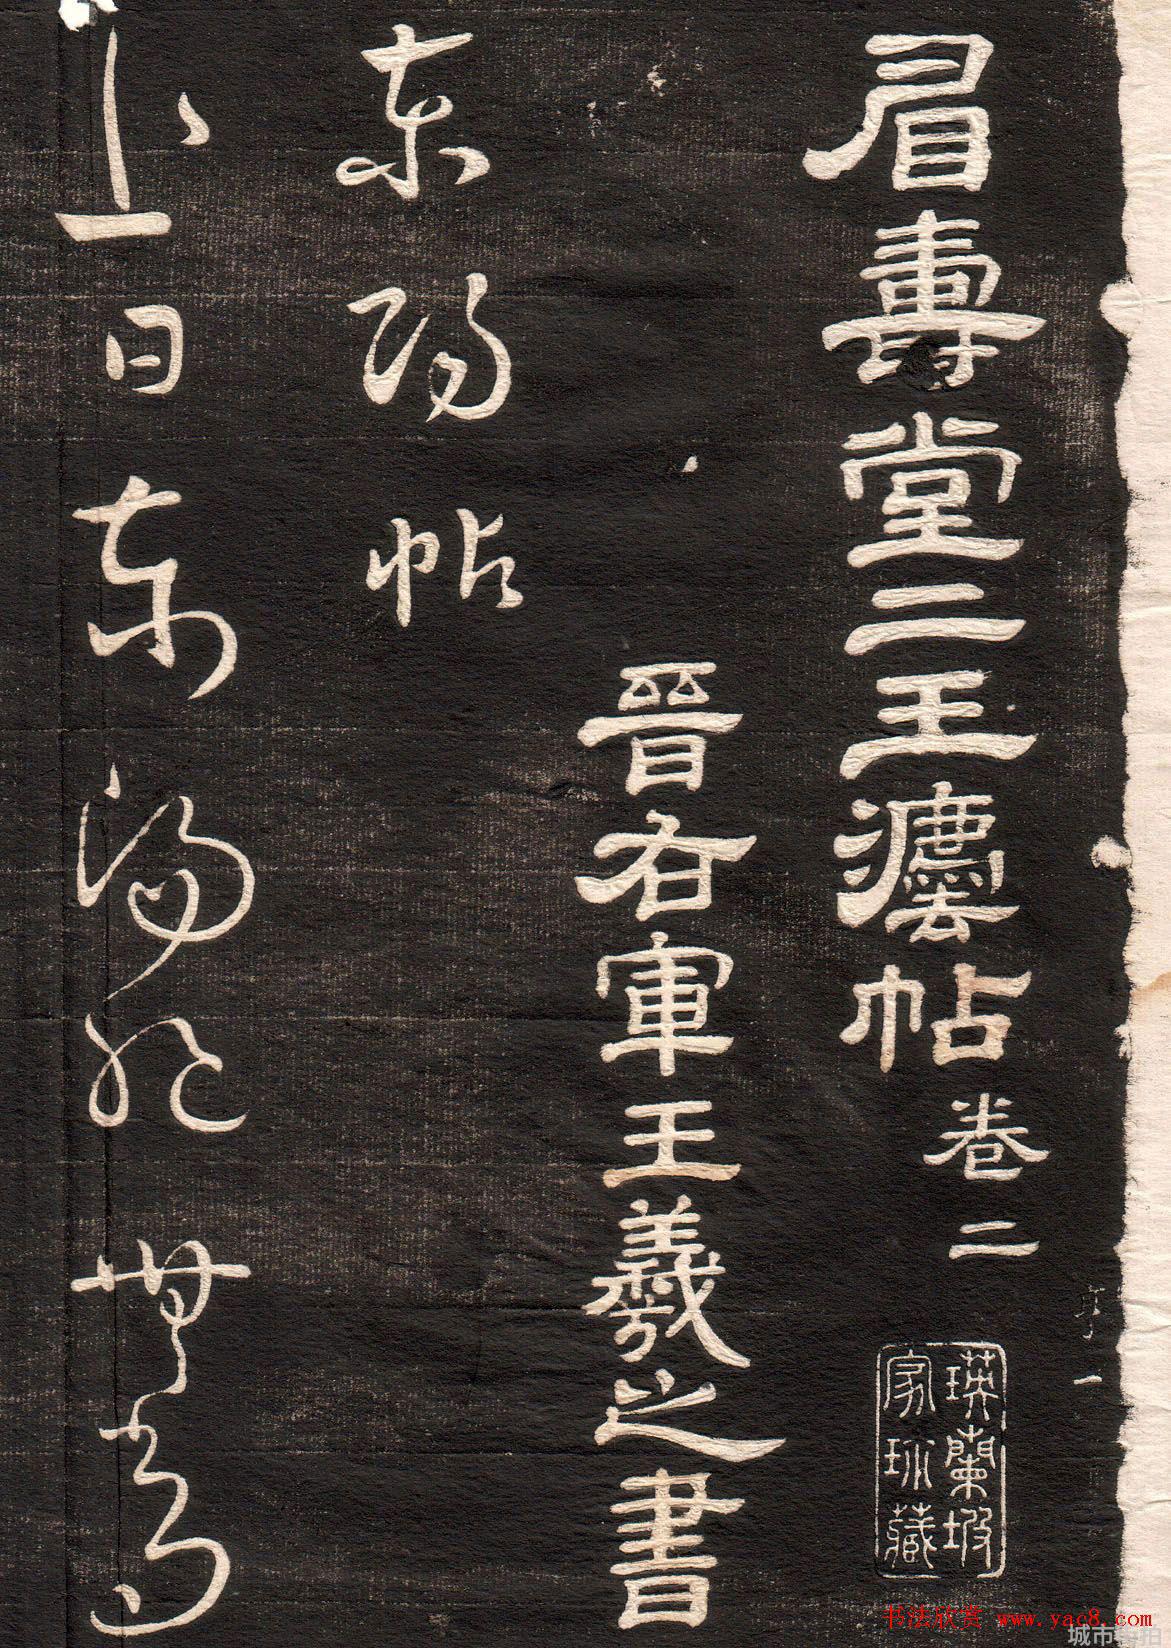 眉壽堂二王灋帖卷二
瑛蘭坡
家珍藏
晉右軍王羲之書
東陽帖
日東陽無
书法欣赏 www.yac8.com
城市